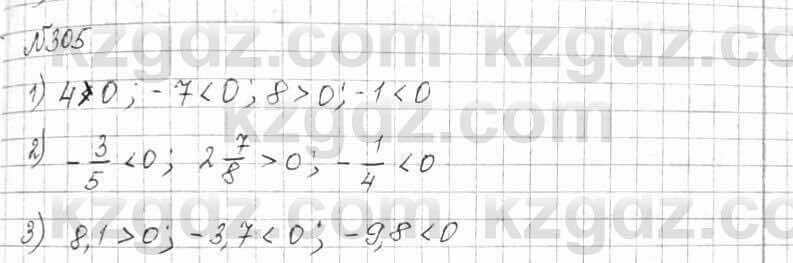 №305
1) 4>0; -7<0; 8>0; -1<0
2) -3/5<0; 2 7/8>0; -1/4<0
3) 8,1>0; -3,7<0; -9,8<0
kzgdz.com
kzgdz.com
kzgdz.com
kzgdz.com